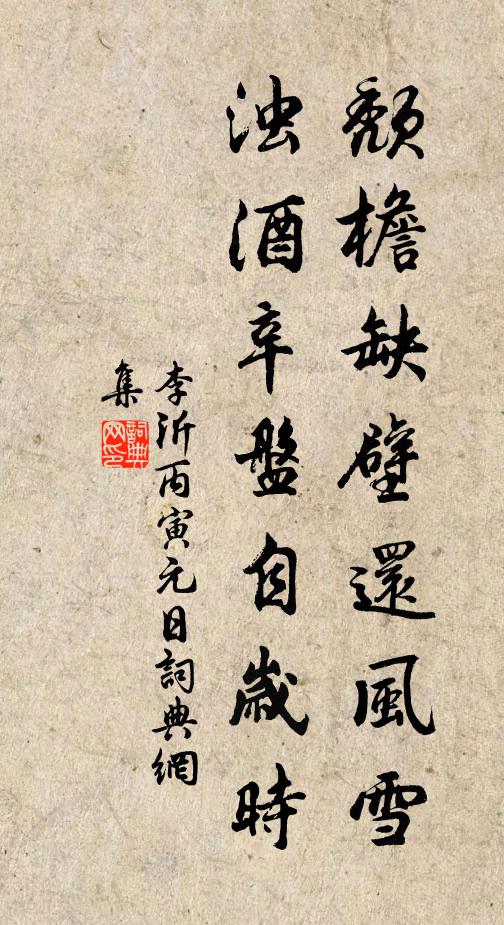 頹檐缺壁還風雪
浊酒辛盤自歲時
李沂丙寅元日詞典網
集
詞典
网印